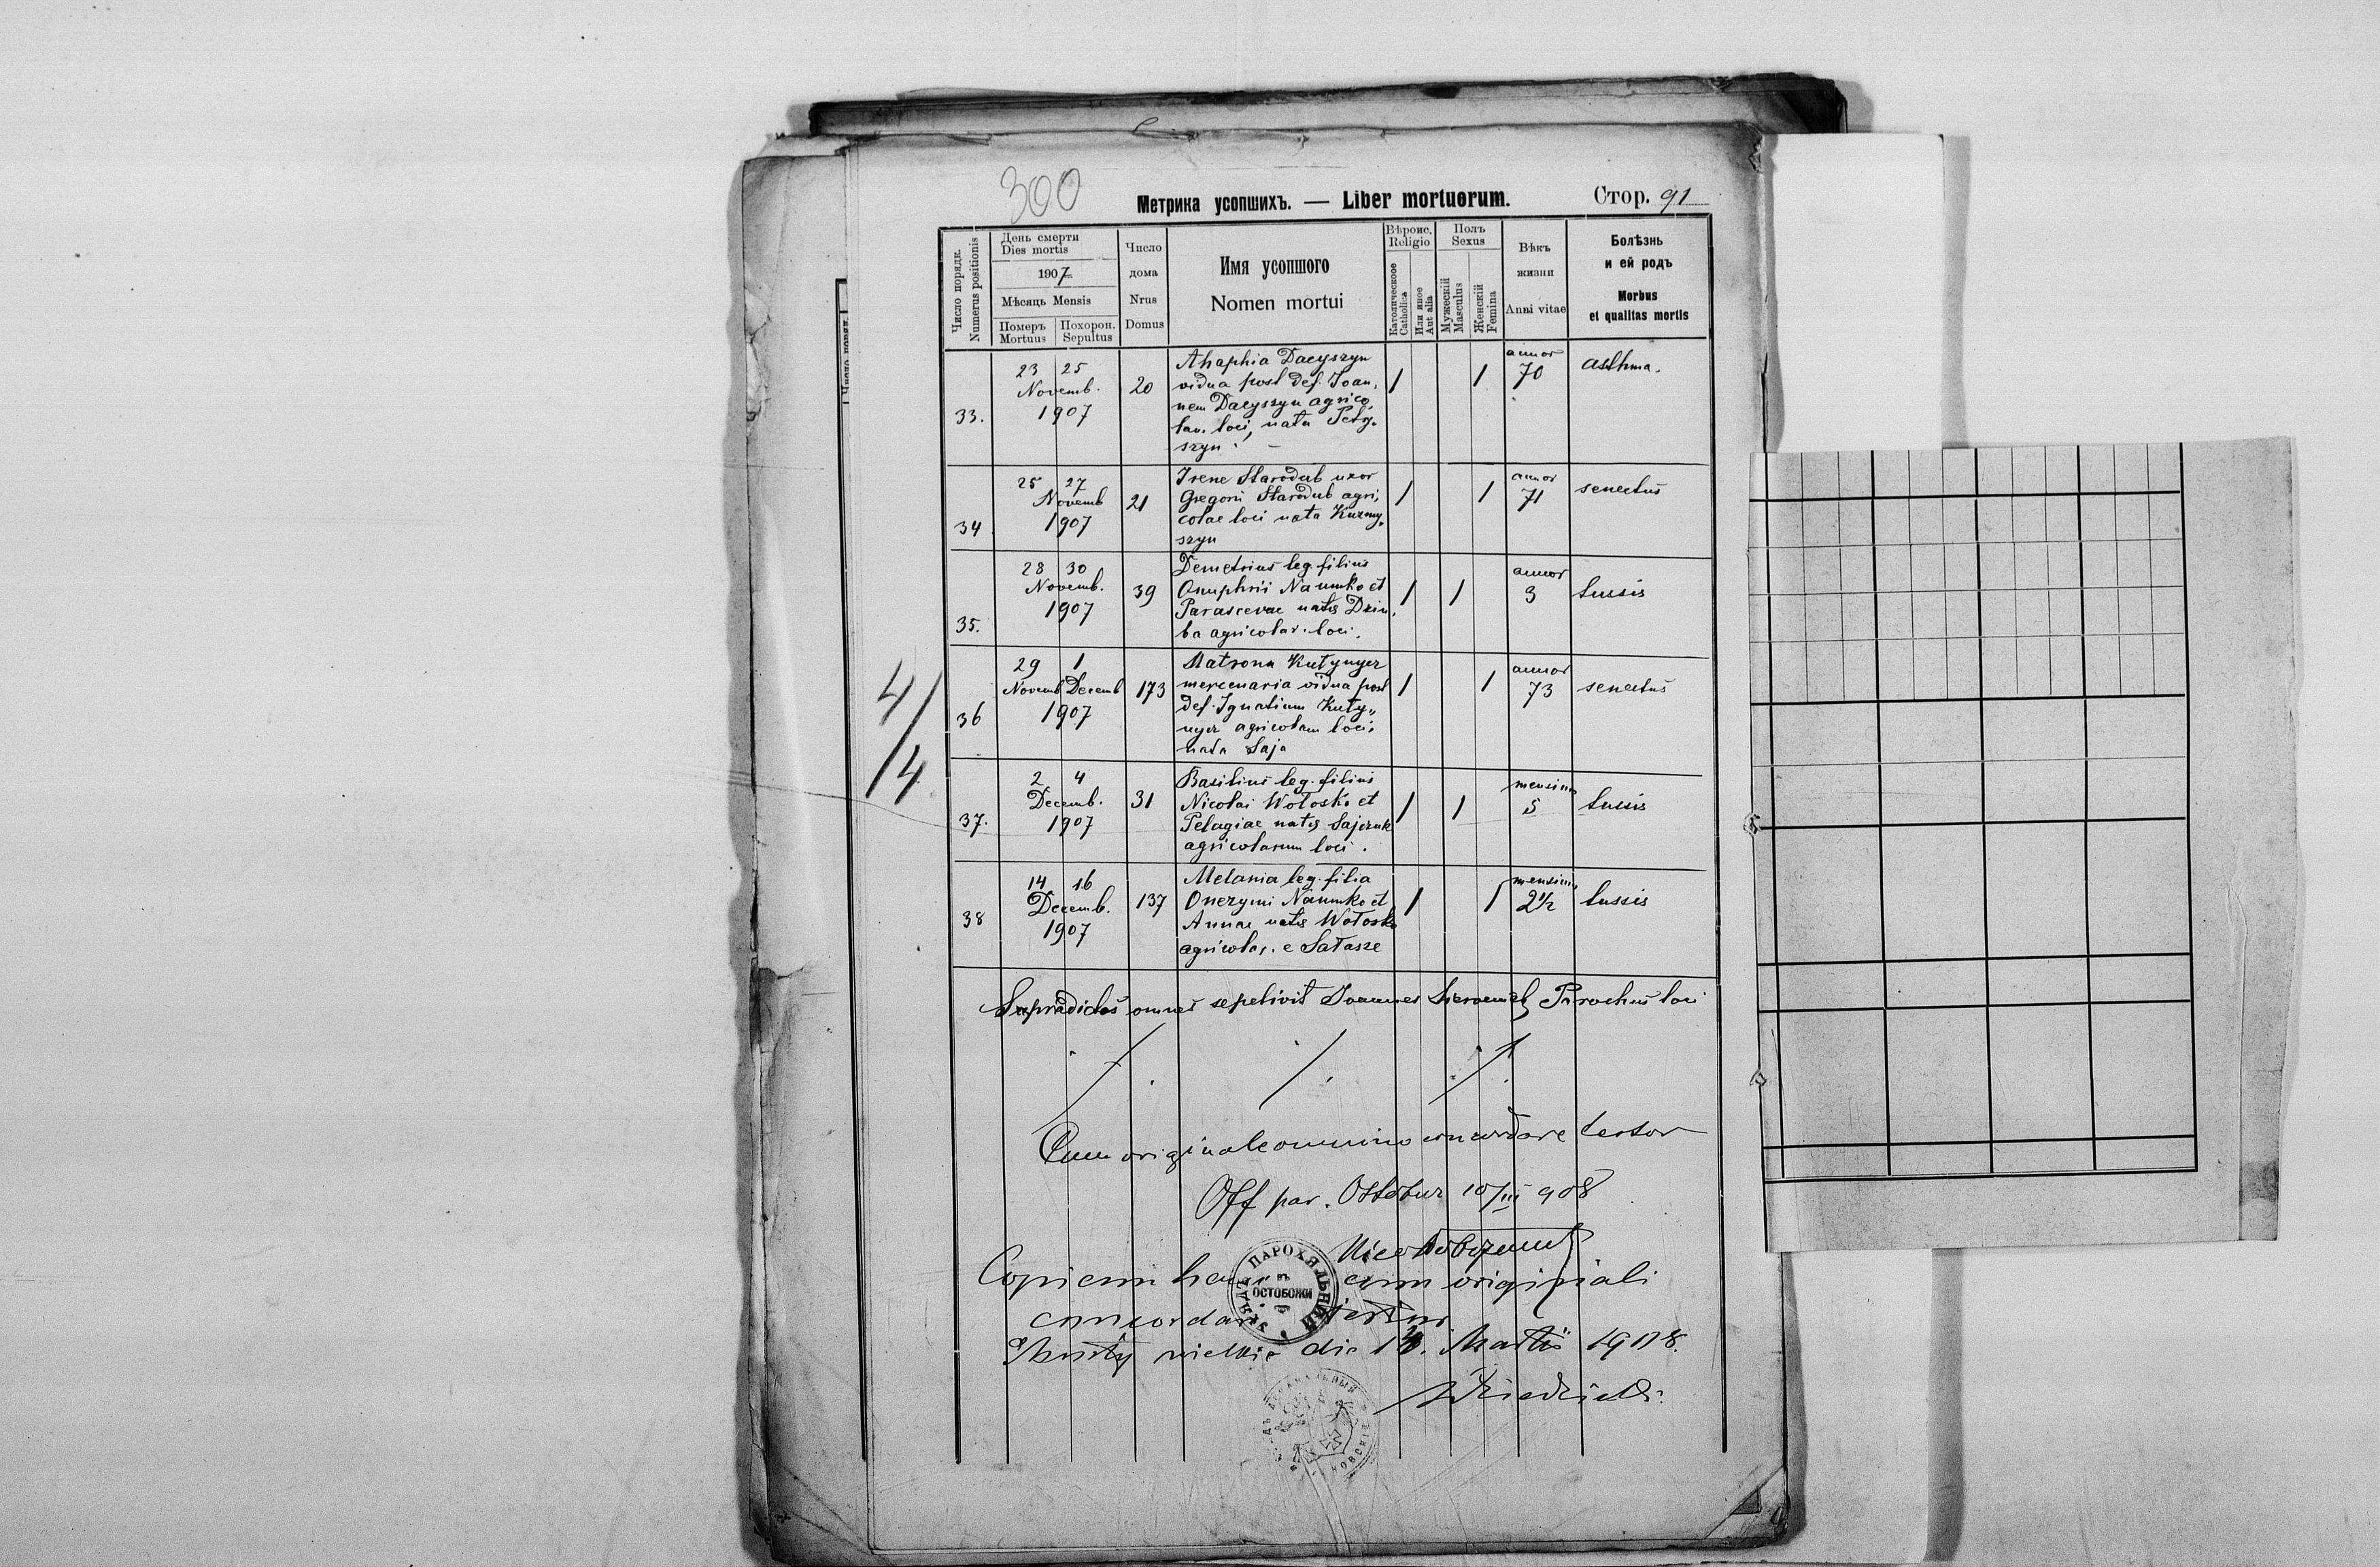 300
Метрика усопшихъ. — Liber mortuorum. Стор. 91
Число порядк.
Numerus positionis
День смерти
Dies mortis
1907
Мѣсяць Mensis
Померъ
Mortuus
Похорон.
Sepultus
Число
дома
Nrus
Domus
Имя усопшого
Nomen mortui
Вѣроис.
Religio
Католическоое
Catholica
Или иное
Aut alia
Полъ
Sexus
Мужескій
Masculus
Женскій
Femina
Вѣкъ
жизни
Anni vitae
Болѣзнь
и ей родъ
Morbus
et qualitas mortis
33.
23 25
Novemb.
1907
20
Ahaphia Dacyszyn
vidua post def. Joan,
nem Dacyszyn agrico,
lam. loci, nata Petry,
szyn. –
1 1
annor
70
asthma.
34
25 27
Novemb
1907
21
Irene Starodub uxor
Gregorii Starodub agri,
colae loci nata Kuzmy,
szyn
1 1
annor
71
senectus
35.
28 30
Novemb.
1907
39
Demetrius leg. filius
Onuphrii Naumko et
Parascevae natis
ba agricolar. loci.
1 1
annor
3
tussis
36
29 1
Novemb Decemb
1907
173
Matrona Kutynyez
mercenaria vidua post
def. Ignatium Kuty,,
nyez agricolam loci,
nata Saja
1 1
annor
73
senectus
37.
2 4
Decemb.
1907
31
Basilius leg. filius
Nicolai Wołosko et
Pelagiae natis Sajczuk
agricolarum loci.
1 1
mensium
5
tussis
38
14 16
Decemb.
1907
137
Melania leg. filia
Onezymi Naumko et
Annae natis Wołosko
agricolar. e Sałasze
1 1
mensium
2 1/2
tussis
4/4
Supradictos omnes sepelivit Joannes Parochus loci
Cum originale omnino concordare testor
Off par. Ostobuz 10/III 908
Copiam hanc cum originali
concordare testor
wielkie die Martii 1908.
ПАРОХЯЛЬНИЙ
ОСТОБОЖИ